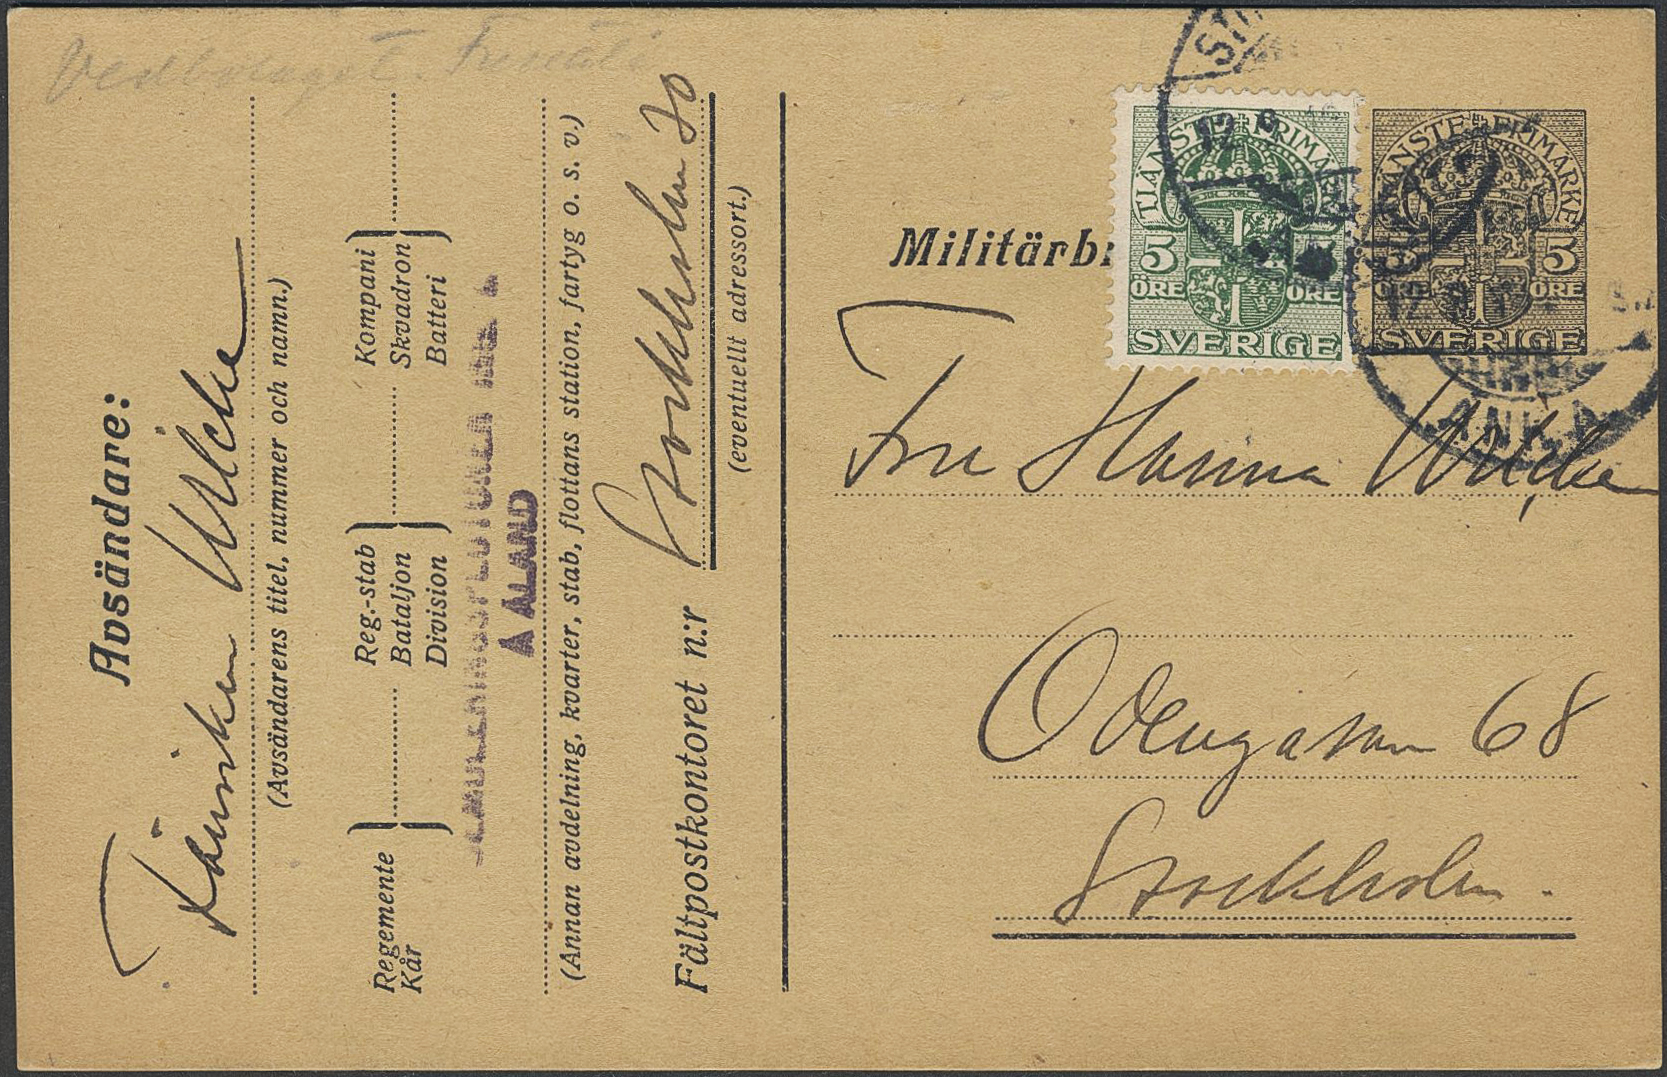 Avsändare:
Fänriken Wicke
(Avsändarens titel, nummer och namn.)
Regemente
Kår
Reg.-stab
Bataljon
Division
Kompani
Skvadron
Batteri
Å ÅLAND
(Annan avdelning, kvarter, stab, flottans station, fartyg o. s. v.)
Fältpostkontoret n:r
Stockholm 30
(eventuellt adressort.)
Militärbr
TJÄNSTE FRIMÄRKE
5 5
ÖRE ÖRE
SVERIGE
TJÄNSTE FRIMÄRKE
5
ÖRE ÖRE
SVERIGE
Fru Hanna Wicke
Odengatan 68
Stockholm.